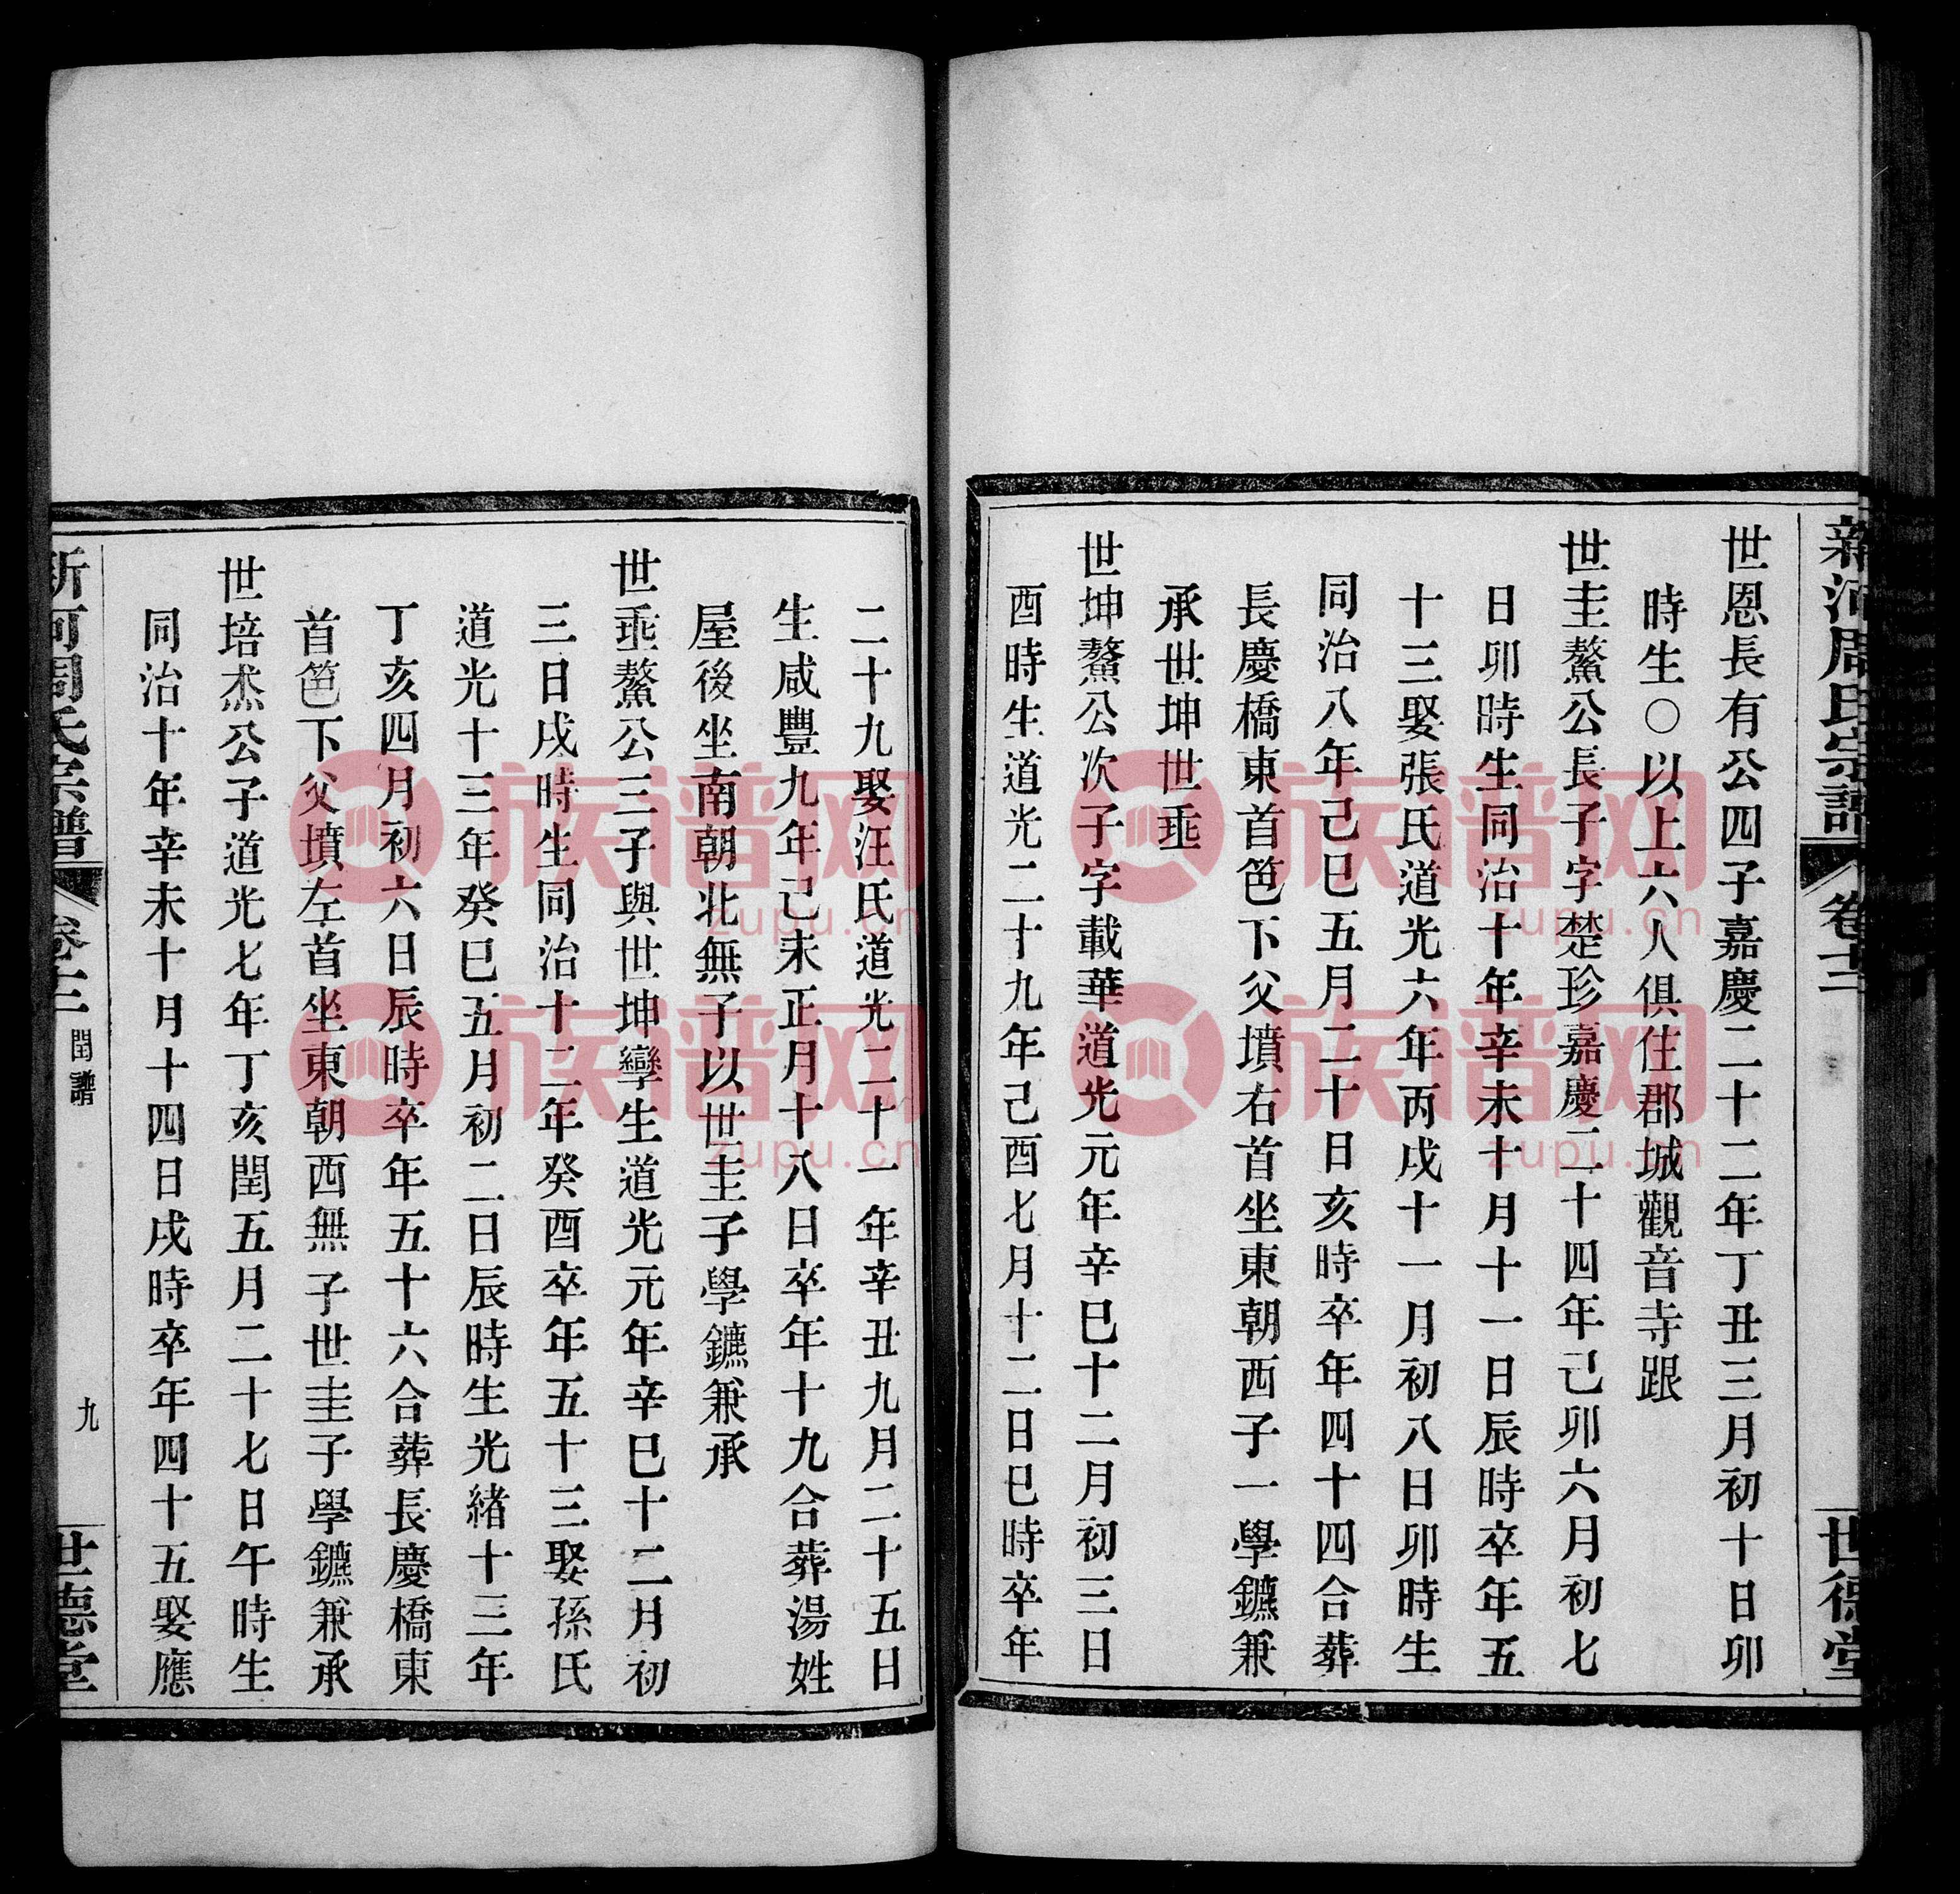 新河周氏宗譜
卷十二
世德堂
世恩長有公四子嘉慶二十二年丁丑三月初十日卯
時生○以上六人俱住郡城觀音寺跟
世圭鰲公長子字楚珍嘉慶二十四年己卯六月初七
日卯時生同治十年辛未十月十一日辰時卒年五
十三娶張氏道光六年丙戌十一月初八日卯時生
同治八年己巳五月二十日亥時卒年四十四合葬
長慶橋東首笆下父墳右首坐東朝西子一學鑣兼
承世坤世乖
世坤鰲公次子字載華道光元年辛巳十二月初三日
酉時生道光二十九年己酉七月十二日巳時卒年
二十九娶汪氏道光二十一年辛丑九月二十五日
生咸豐九年己未正月十八日卒年十九合葬湯姓
屋後坐南朝北無子以世圭子學鑣兼承
世乖鰲公三子與世坤孿生道光元年辛巳十二月初
三日戌時生同治十二年癸酉卒年五十三娶孫氏
道光十三年癸巳五月初二日辰時生光緒十三年
丁亥四月初六日辰時卒年五十六合葬長慶橋東
首笆下父墳左首坐東朝西無子世圭子學鑣兼承
世培𤇍公子道光七年丁亥閏五月二十七日午時生
同治十年辛未十月十四日戌時卒年四十五娶應
新河周氏宗譜
卷十二
閏譜
九
世德堂
族谱网
zupu.cn
族谱网
zupu.cn
族谱网
zupu.cn
族谱网
zupu.cn